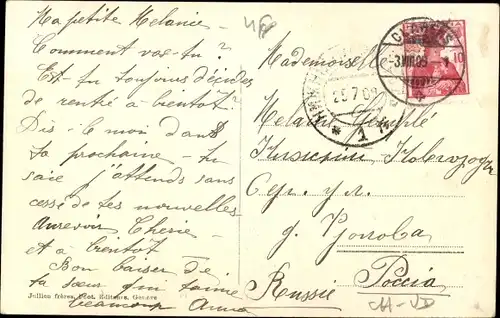 Ma petite Melanie -
Comment vas-tu?
Es-tu toujours décidée
de rentré a bientôt?
Dis-le moi dans
ta prochaine - tu
sais j'attends sans
cesse de tes nouvelles
Aurevoir Cherie -
et a bientôt
Bon baiser de
ta sœur qui t'aime
beaucoup Anna
Jullien frères, Phot. Editeurs, Genève
48
Mademoiselle
CLARENS
-3.VIII.09.
10
25.7.09
1
Melanie
Нижній Новгород
Сер. ул.
д.
Россія
Russie
CH-VD